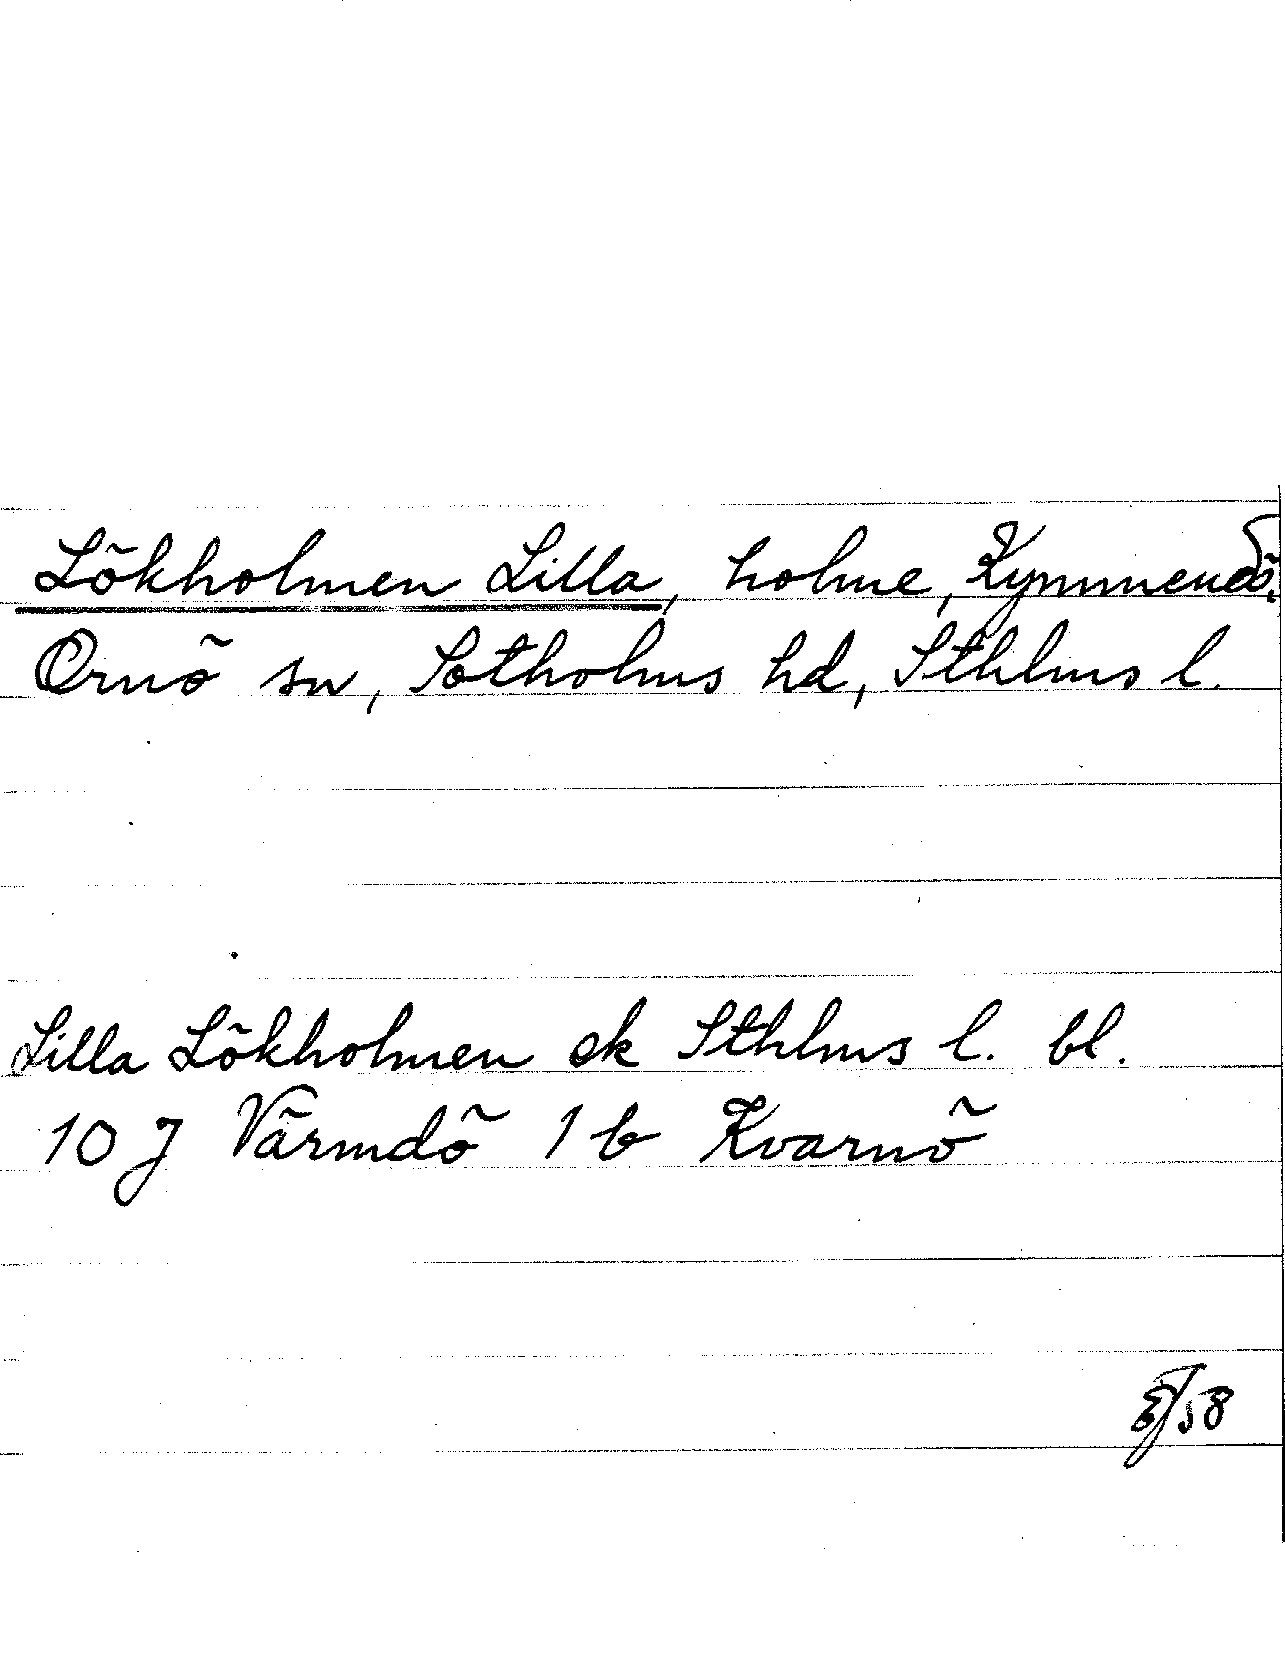 Lökholmen Lilla, holme, Kymmendö,
Ornö sn, Sotholms hd, Sthlms l.
Lilla Lökholmen ek Sthlms l. bl.
10 J Värmdö 1 b Kvarnö
/58